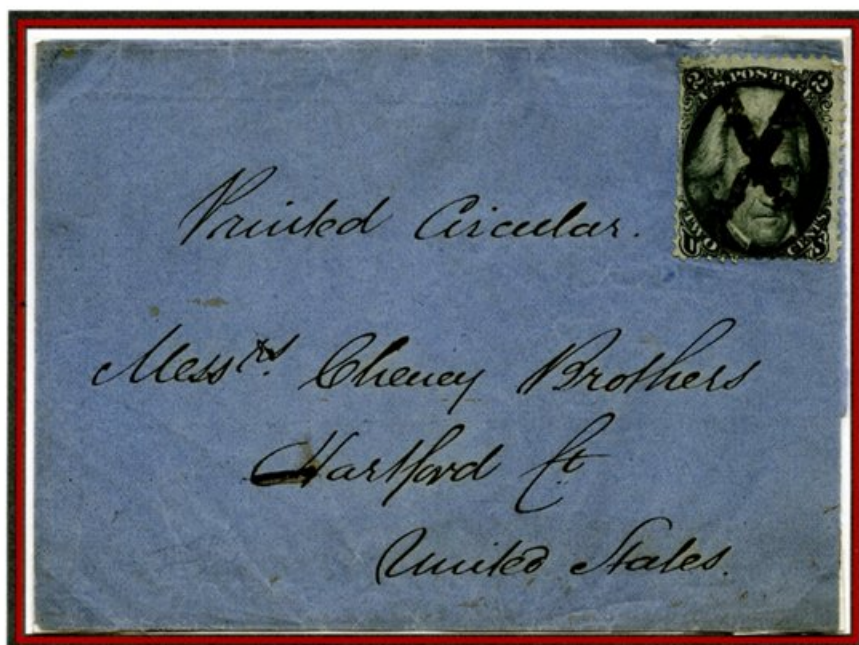 2 U.S. POSTAGE 2
TWO CENTS
U S
Printed Circular.
Messrs. Cheney Brothers
Hartford Ct
United States.